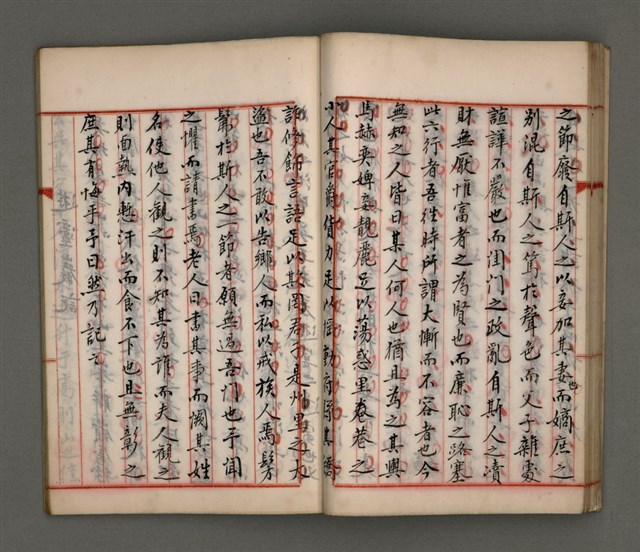 之節廢自斯人之以妾加其妻也而嫡庶之
別混自斯人之篤於聲色而父子雜處
諠譁不嚴也而閨門之政亂自斯人之凟
財無厭惟富者之為賢也而廉恥之路塞
此六行者吾往時所謂大慚而不容者也今
無知之人皆曰其人何人也猶且為之其輿
馬赫奕婢妾靚麗足以蕩惑里巷巷之
小人其官爵貨力足以傾動府縣其矯
詐修飾言語足以欺罔君子是州里之大
盜也吾不敢以告鄉人而私以戒族人焉髣
髴於斯人之一節者願無過吾門也予聞
之懼而請書焉老人曰書其事而闕其姓
名使他人觀之則不知其為誰而夫人觀之
則面熱內慙汗出而食不下也且無彰之
庶其有悔乎予曰然乃記之